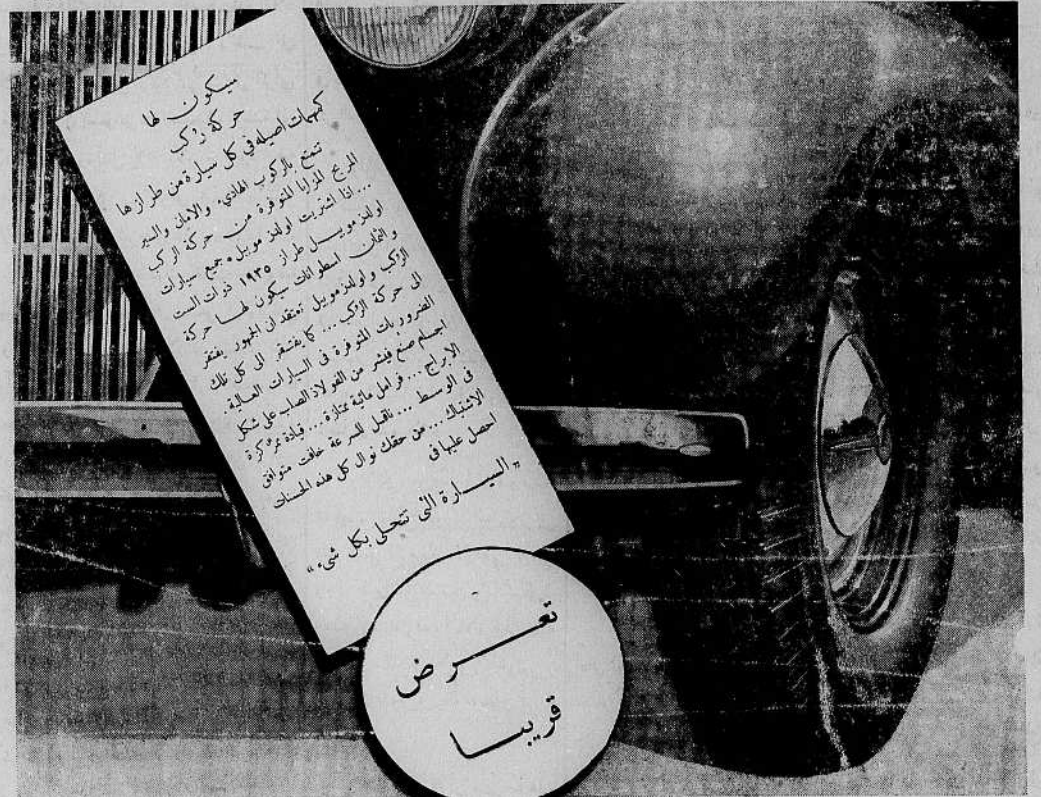 سيكون لها
حركة رُكب
كمهمات اصيله في كل سيارة من طرازها
تمتع بالركوب الهادىء والامان والسير
المريح المزايا المتوفرة من حركة الركب
... اذا اشتريت اولدز موبيل. جميع سيارات
اولدز موبيل طراز ١٩٣٥ ذوات الست
والثمان اسطوانات سيكون لها حركة
الرُكب واولدزموبيل تعتقد ان الجمهور يفتقر
الى حركة الرُكب ... كما يفتقر الى كل تلك
الضروريات المتوفرة فى السيارات العالية.
اجسام صنع فيشر من الفولاذ الصلب على شكل
الابراج ... فرامل مائية ممتازة ... قيادة مركزة
فى الوسط ... ناقل للسرعة خافت متوافق
الاشتباك ... من حقك نوال كل هذه الحسنات
احصل عليها فى
« السيارة التى تتحلى بكل شىء »
تعــرض
قريبــا